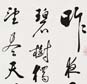 昨夜
碧樹獨
望盡天